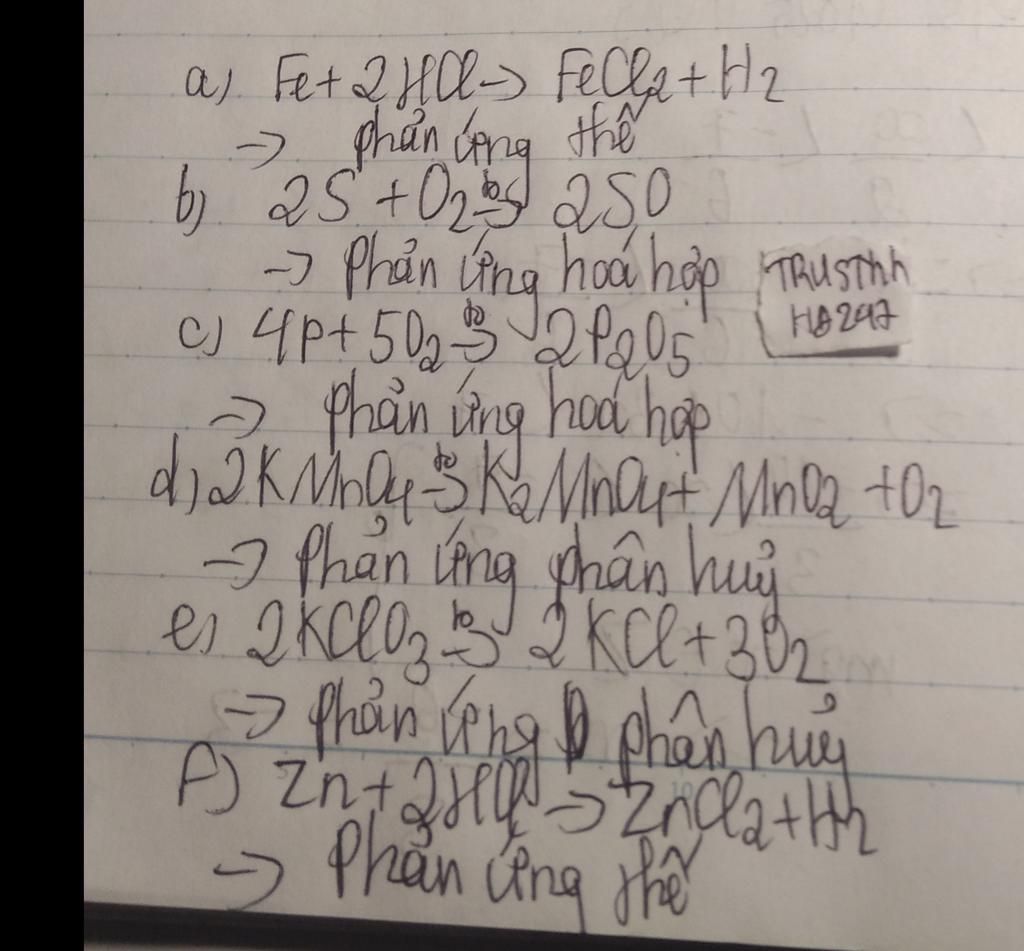 a) Fe + 2HCl -> FeCl2 + H2
-> phản ứng thế
b) 2S + O2 t°-> 2SO
-> Phản ứng hoá hợp
TRUSTnh
HĐ247
c) 4P + 5O2 t°-> 2P2O5
-> phản ứng hoá hợp
d) 2KMnO4 t°-> K2MnO4 + MnO2 + O2
-> Phản ứng phân huỷ
e) 2KClO3 t°-> 2KCl + 3O2
-> phản ứng phân huỷ
f) Zn + 2HCl -> ZnCl2 + H2
-> Phản ứng thế